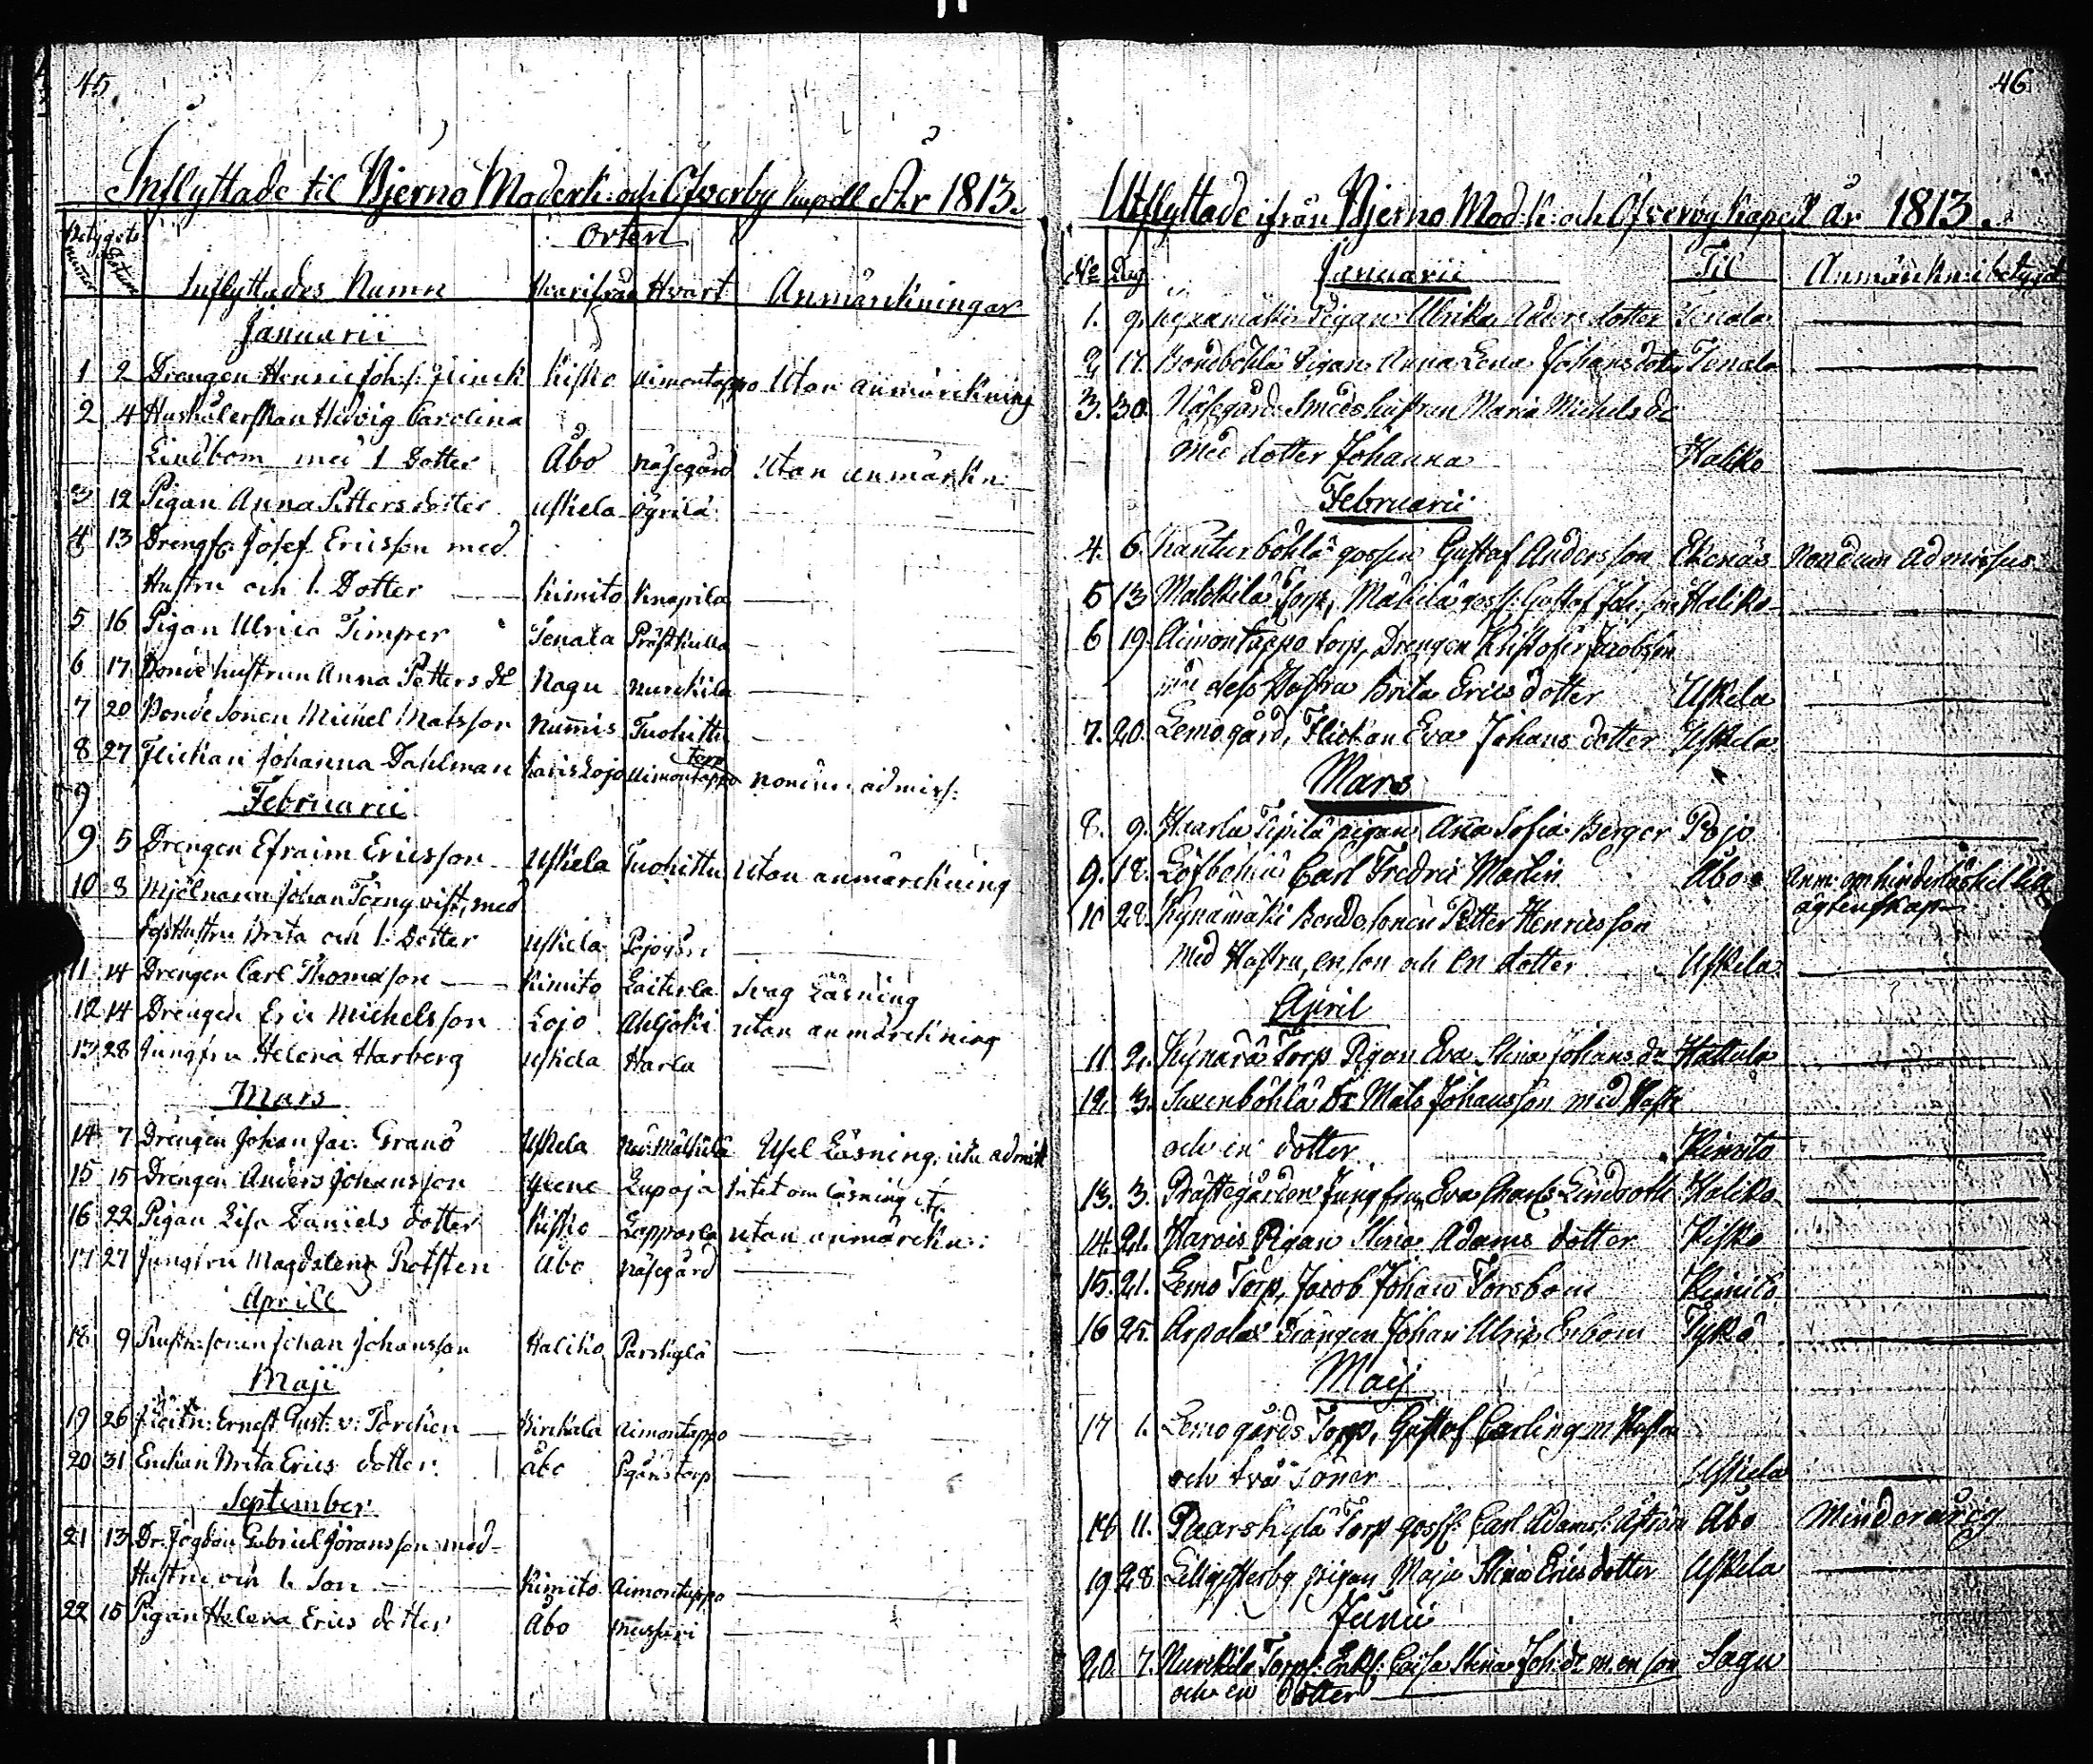 45.
Inflyttade til Bjerno Moderk: och Ofverby kapell År 1813.
Betygets
nummer datum
Orten
Inflyttades Namn Hvarifrån Hvart Anmärckningar
Januarii
1 2 Drengen Henric Joh:s: Flinck Kisko Aimontappo Utan anmärckning
2 4 Hushålerskan Hedvig Carolina
Lindbom med 1 Dotter Åbo Näsegård Utan anmärkn:
3 12 Pigan Anna Petters dotter Uskela
4 13 Josef Ericsson med
Hustru och 1. Dotter Kimito Knapila
5 16 Pigan Ulrica Timper Tenala Prästkulla
6 17 Bonde hustrun Anna Petters dr Nagu Nurckila
7 20 Bonde Sonen Michel Matsson Nummis Tuohittu
8 27 Flickan Johanna Dahlman Karislojo Aimontappo torp nondum admiss:
Februarii
9 5 Drengen Efraim Ericsson Uskela Tuohittu Utan anmärckning
10 8 Mjölnaren Johan Törnqvist, med
Hustru Brita och 1. Dotter Uskela
11 14 Drengen Carl Thomasson Kimito Laiterla Svag Läsning
12 14 Drengen Eric Michelsson Lojo Ahljoki utan anmärckning
13 28 Jungfru Helena Harberg Uskela Harla
Mars
14 7 Drengen Johan Jac: Granö Uskela Usel Läsning, icke admitt
15 15 Drengen Anders Johansson Lupaja Intet om läsning
16 22 Pigan Lisa Daniels dotter Kisko Lapparla utan anmärckn:
17 27 Jungfru Magdalena Åbo Näsegård
Aprill
18 9 Johan Johansson Haliko Parskylä
Maji
19 26 Ernest Gust: v: Torcken Birckala Aimontappo
20 31 Enckan Brita Erics dotter Åbo torp
September
21 13 Dr: Gabriel Göransson med
Hustru och 1. Son Kimito Aimontappo
22 15 Pigan Helena Erics dotter Åbo
46
Utflyttade ifrån Bjerno Mod: k: och Ofverby kapell år 1813.
No Dag Januarii Til Anmärckn: i betyget
1. 9. Kynämäki Pigan Ulrika Anders dotter Tenala
2 17. Bondböhle Pigan Anna Lena Johans dotter Tenala
3. 30. Näsegårds Smedshustrun Maria Michels dr
med dotter Johanna Haliko
Februarii
4. 6. gossen Gustaf Andersson Ekenäs Nondum admissus
5 13 Torp, goss: Gustaf Joh:son Haliko
6 19 Aimontappo torp, Drengen Kristofer Jacobsson
med dess Hustru Brita Erics dotter Uskela
7. 20. Lemo gård, Flickan Eva Johans dotter Uskela
Mars
8. 9. Haarla pigan Anna Sofia Berger Pojo
9. 18. Löfböhle Carl Fredric Martin Åbo Anm: om hinderlöshet til
ägtenskap
10 28. Kynämäki Bonde sonen Petter Henricsson
Med Hustru, en son och en dotter Uskela
April
11. 2. Torp Pigan Eva Stina Johans dr Hattula
12. 3. Saxenböhle Dr Mats Johansson med Hustr
och en dotter Kimito
13. 3. Prästegården Jungfru Eva Charl: Lindroth Haliko
14. 21. Pigan Stina Adams dotter Kisko
15. 21. Lemo Torp, Jacob Johan Forsbom Kimito
16 25. Arpalax Drängen Johan Ulric Enbom Tykö
Maij
17 1. Lemo gårds Torp, Gustaf Carling m Hustru
och två Söner Uskela
18 11. Paarskylä Torp goss: Carl Adams: Åström Åbo Minderårig
19 28. pigan Maja Stina Erics dotter Uskela
Junii
20. 7. Nurckila Torp: Enk: Caisa Stina Joh: dr m. en son Sagu
och en dotter